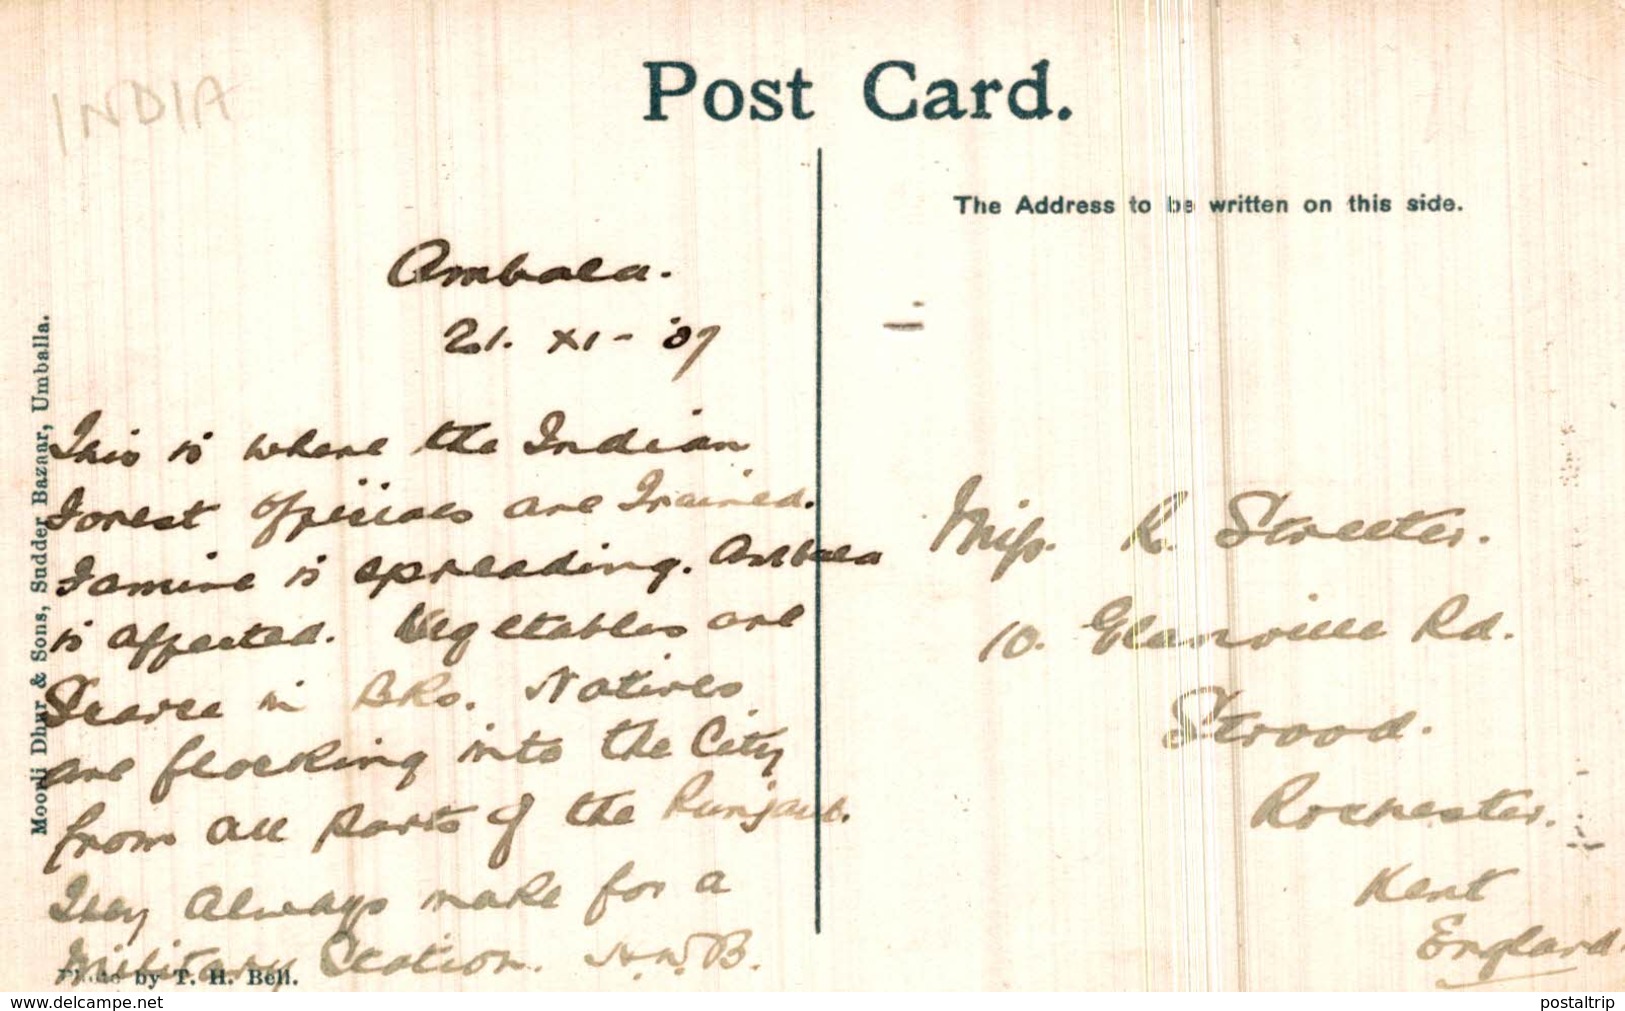 INDIA
Post Card.
The Address to be written on this side.
Moorli Dhur & Sons, Sudder Bazaar, Umballa.
Ambala.
21. XI - '07
This is where the Indian
Forest Officials are Trained.
Famine is spreading. Ambala
is affected. Vegetables are
Scarce in BKs. Natives
are flocking into the City
from all parts of the Punjaub.
They always make for a
Military Station. H.W.B.
Photo by T. H. Bell.
Miss. R. Streeter.
10. Glanville Rd.
Strood.
Rochester.
Kent
England.
www.delcampe.net
postaltrip